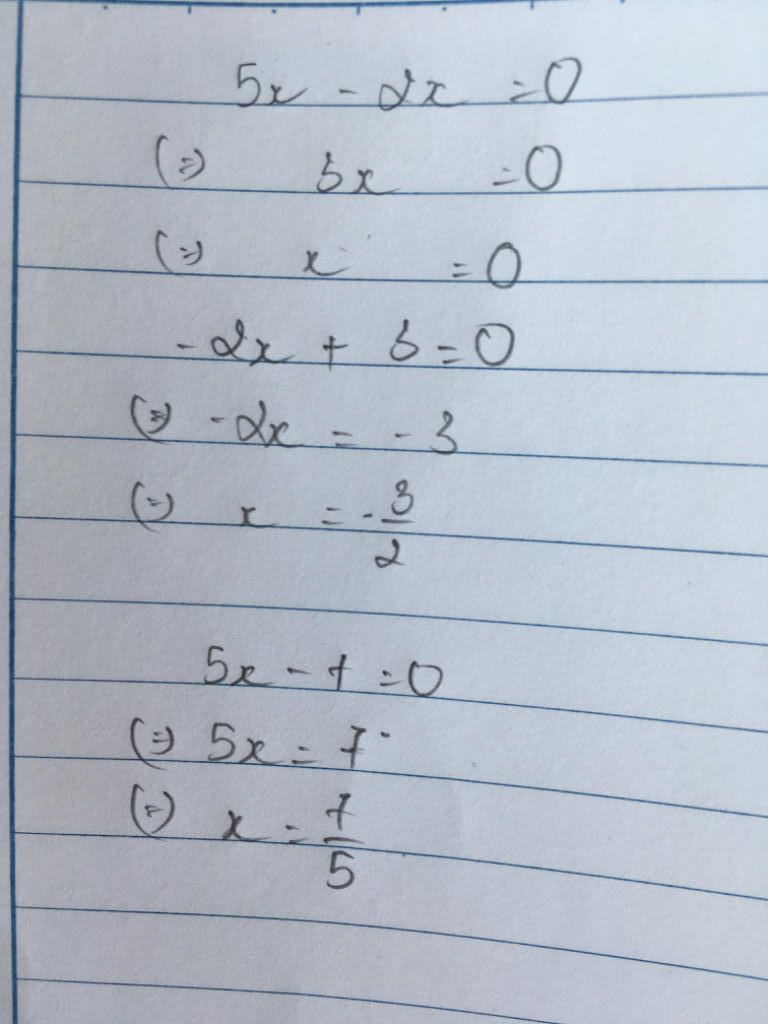 5x - 2x = 0
(=) 3x = 0
(=) x = 0
-2x + 3 = 0
(=) -2x = -3
(=) x = -3/2
5x - 7 = 0
(=) 5x = 7
(=) x = 7/5